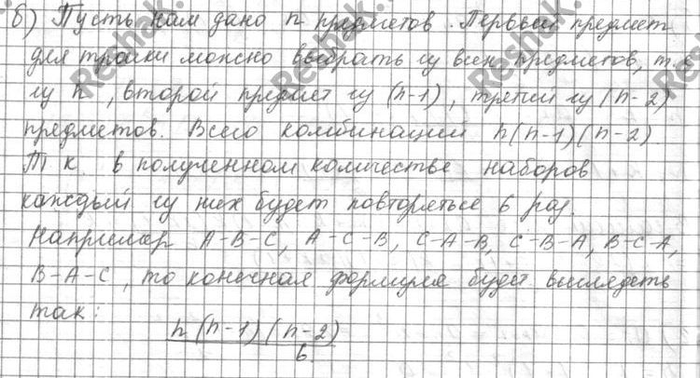 б) Пусть нам дано n предметов. Первый предмет
для тройки можно выбрать из всех предметов, т.е
из n, второй предмет из (n-1), третий из (n-2)
предметов. Всего комбинаций n(n-1)(n-2).
Т к. в полученном количестве наборов
каждый из них будет повторяться 6 раз.
Например A-B-C, A-C-B, C-A-B, C-B-A, B-C-A,
B-A-C, то конечная формула будет выглядеть
так:
n(n-1)(n-2)
6.